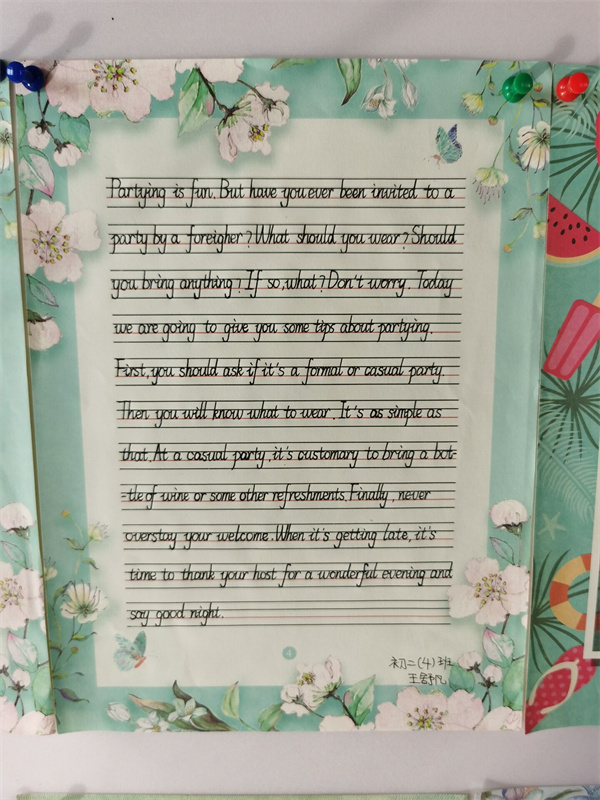 Partying is fun. But have you ever been invited to a
party by a foreigher? What should you wear? Should
you bring anything? If so, what? Don't worry. Today
we are going to give you some tips about partying.
First, you should ask if it's a formal or casual party.
Then you will know what to wear. It's as simple as
that. At a casual party, it's customary to bring a bot-
-tle of wine or some other refreshments. Finally, never
overstay your welcome. When it's getting late, it's
time to thank your host for a wonderful evening and
say good night.
4
初二(4)班